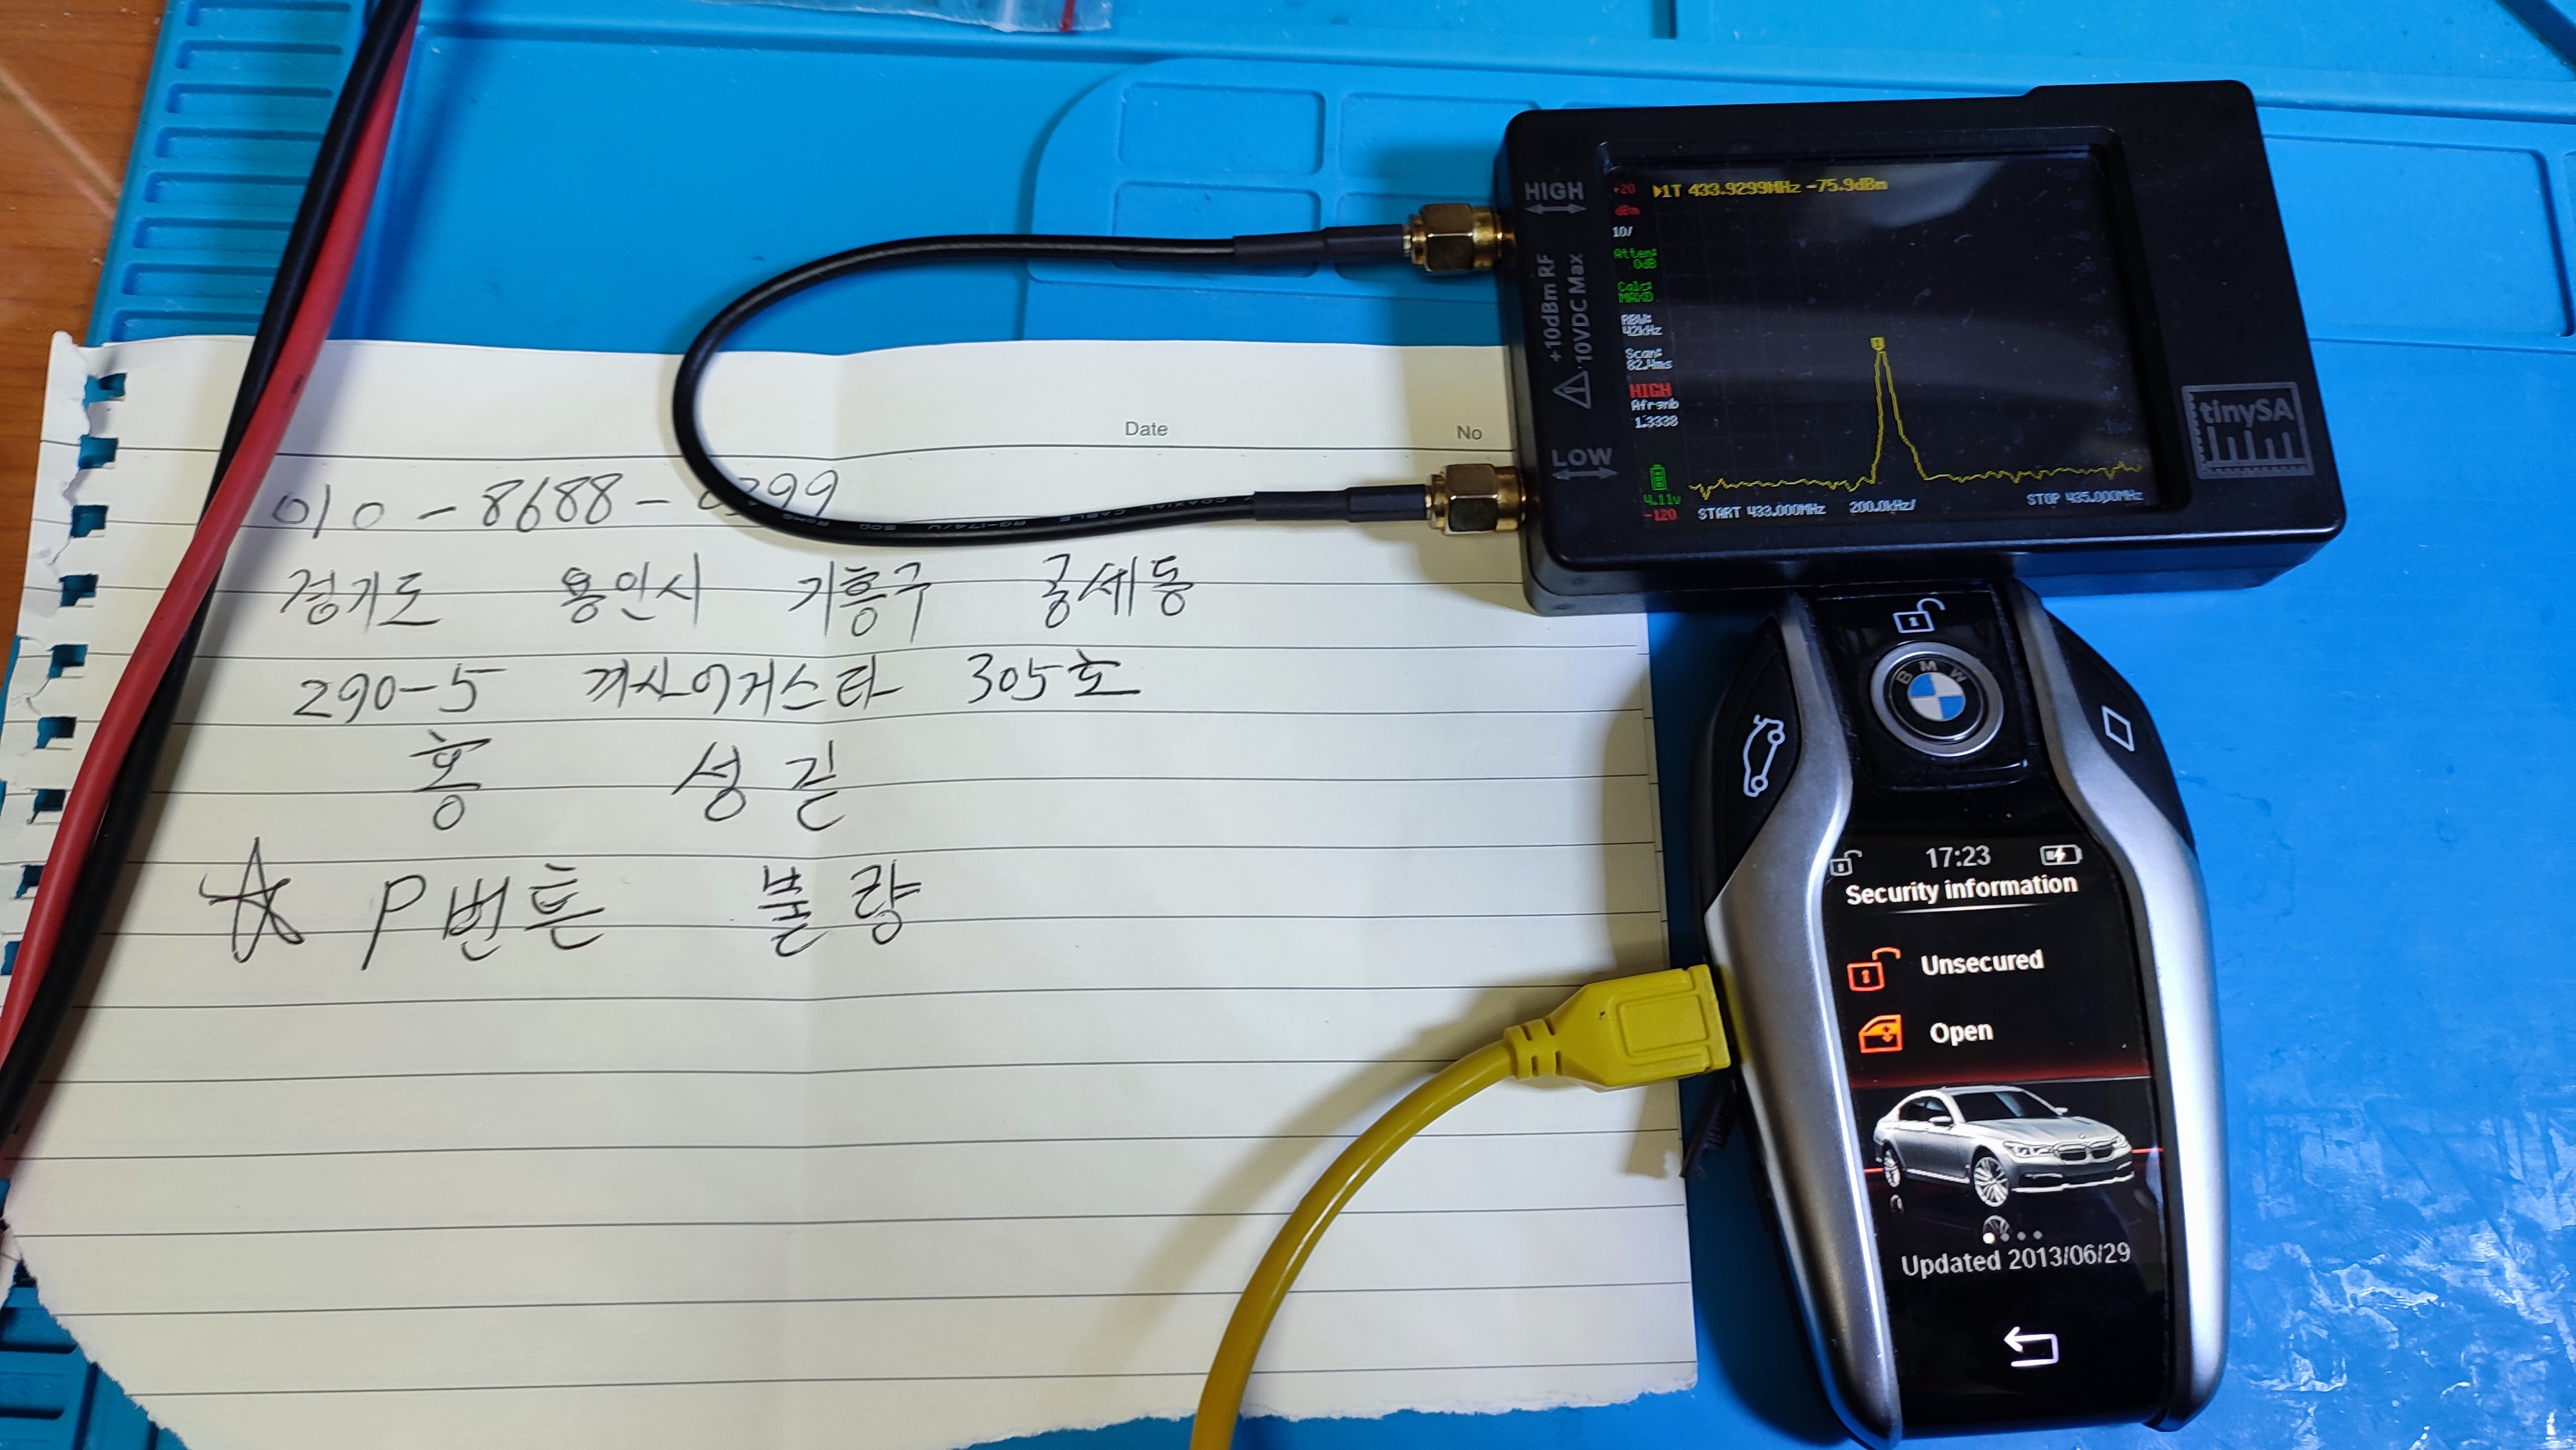 Date No
010-8688-
경기도 용인시 기흥구
290-5 305호
홍 성길
☆ P버튼 불량
HIGH
+10dBm RF
10VDC Max
LOW
+20
dBm
10/
Atten:
0dB
Calc:
MAXD
RBW:
42kHz
Scan:
82.4ms
HIGH
4.11v
-120
1T 433.9299MHz -75.9dBm
START 433.000MHz 200.0kHz/ STOP 435.000MHz
tinySA
BMW
17:23
Security information
Unsecured
Open
Updated 2013/06/29